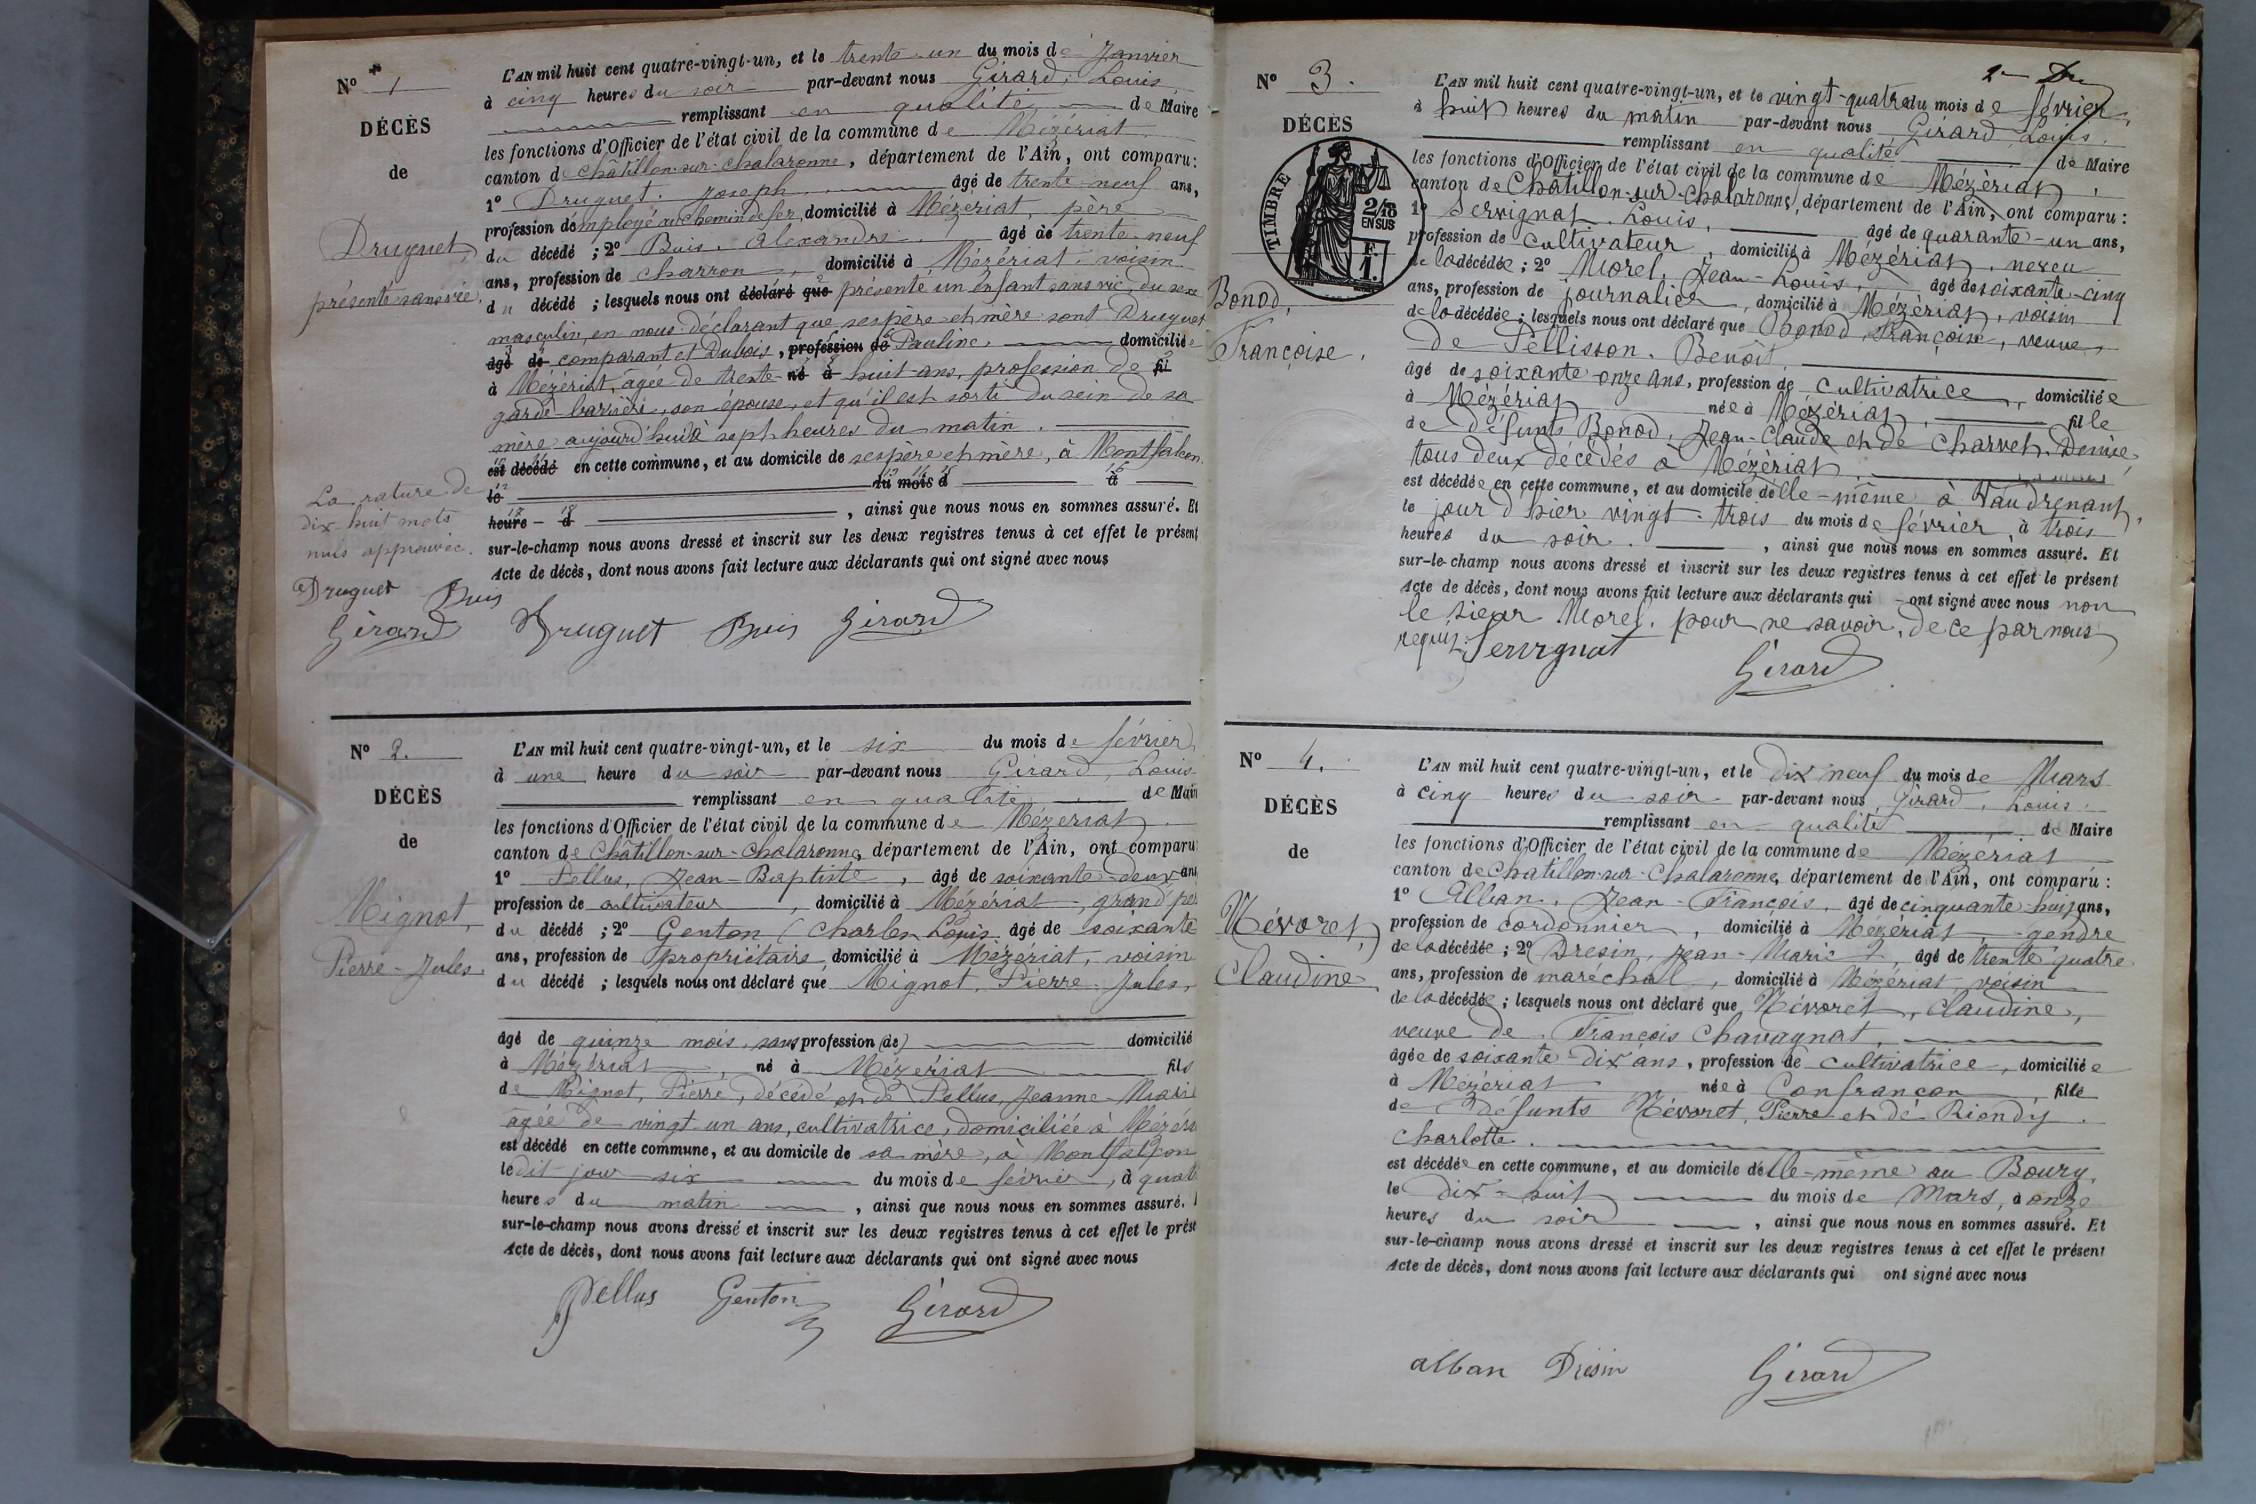 N° 1
DÉCÈS
de
Druguet,
présenté sans vie.
L'AN mil huit cent quatre-vingt-un, et le trente-un du mois de Janvier
à cinq heures du soir par-devant nous Girard, Louis,
remplissant en qualité de Maire
les fonctions d'Officier de l'état civil de la commune de Mézériat
canton de Châtillon-sur-Chalaronne, département de l'Ain, ont comparu :
1° Druguet, Joseph âgé de trente-neuf ans,
profession d'employé au chemin de fer, domicilié à Mézériat, père
du décédé ; 2° Buis, Alexandre, âgé de trente-neuf
ans, profession de charron, domicilié à Mézériat, voisin
du décédé ; lesquels nous ont déclaré que présenté un enfant sans vie, du sexe
masculin, en nous déclarant que ses père et mère sont Druguet
âgé de comparant et Dubois, profession de Pauline, domiciliée
à Mézériat, âgée de trente né à huit ans, profession de fil
garde-barrière, son épouse, et qu'il est sorti du sein de sa
mère aujourd'hui à sept heures du matin.
est décédé en cette commune, et au domicile de ses père et mère, à Montfalcon.
le du mois d à
heure d , ainsi que nous nous en sommes assuré. Et
sur-le-champ nous avons dressé et inscrit sur les deux registres tenus à cet effet le présent
Acte de décès, dont nous avons fait lecture aux déclarants qui ont signé avec nous
La rature de
dix-huit mots
nuls approuvée.
Druguet Buis
Girard Druguet Buis Girard
N° 2.
DÉCÈS
de
Mignot,
Pierre-Jules.
L'AN mil huit cent quatre-vingt-un, et le six du mois de février,
à une heure du soir par-devant nous Girard, Louis
remplissant en qualité de Mair
les fonctions d'Officier de l'état civil de la commune de Mézériat
canton de Châtillon-sur-Chalaronne, département de l'Ain, ont comparu
1° Pellus, Jean-Baptiste, âgé de soixante-deux ans
profession de cultivateur, domicilié à Mézériat, grand-pèr
du décédé ; 2° Genton, Charles Louis âgé de soixante
ans, profession de propriétaire, domicilié à Mézériat, voisin
du décédé ; lesquels nous ont déclaré que Mignot, Pierre-Jules,
âgé de quinze mois, sans profession (de) domicilié
à Mézériat, né à Mézériat fils
de Mignot, Pierre, décédé et de Pellus, Jeanne-Mari
âgée de vingt-un ans, cultivatrice, domiciliée à Mézéri
est décédé en cette commune, et au domicile de sa mère, à Montfalcon
ledit jour six du mois de février, à quat
heures du matin , ainsi que nous nous en sommes assuré.
sur-le-champ nous avons dressé et inscrit sur les deux registres tenus à cet effet le prése
Acte de décès, dont nous avons fait lecture aux déclarants qui ont signé avec nous
Pellus Genton Girard
2e
N° 3.
DÉCÈS
TIMBRE
2/10
EN SUS
F
1.
Bonod,
Françoise.
L'AN mil huit cent quatre-vingt-un, et le vingt-quatre du mois de février,
à huit heures du matin par-devant nous Girard, Louis,
remplissant en qualité de Maire
les fonctions d'Officier de l'état civil de la commune de Mézériat,
canton de Châtillon-sur-Chalaronne, département de l'Ain, ont comparu :
1° Servignat, Louis, âgé de quarante-un ans,
profession de cultivateur, domicilié à Mézériat, neveu
de la décédée ; 2° Morel, Jean-Louis, âgé de soixante-cinq
ans, profession de journalier, domicilié à Mézériat, voisin
de la décédée ; lesquels nous ont déclaré que Bonod, Françoise, veuve
de Pellisson, Benoît,
âgé de soixante-onze ans, profession de cultivatrice, domiciliée
à Mézériat, née à Mézériat, fille
de défunts Bonod, Jean-Claude et de Charvet, Denise,
tous deux décédés à Mézériat,
est décédée en cette commune, et au domicile d'elle-même à Vaudrenant,
le jour d'hier vingt-trois du mois de février, à trois
heures du soir. , ainsi que nous nous en sommes assuré. Et
sur-le-champ nous avons dressé et inscrit sur les deux registres tenus à cet effet le présent
Acte de décès, dont nous avons fait lecture aux déclarants qui ont signé avec nous non
le sieur Morel, pour ne savoir, de ce par nous
requis. Servignat
Girard
N° 4.
DÉCÈS
de
Névoret,
Claudine
L'AN mil huit cent quatre-vingt-un, et le dix neuf du mois de Mars
à cinq heures du soir par-devant nous Girard, Louis.
remplissant en qualité de Maire
les fonctions d'Officier de l'état civil de la commune de Mézériat
canton de Châtillon-sur-Chalaronne, département de l'Ain, ont comparu :
1° Alban, Jean-François, âgé de cinquante-huit ans,
profession de cordonnier, domicilié à Mézériat, gendre
de la décédée ; 2° Dresin, Jean-Marie, âgé de trente quatre
ans, profession de maréchal, domicilié à Mézériat, voisin
de la décédée ; lesquels nous ont déclaré que Névoret, Claudine,
veuve de François Chavagnat,
âgée de soixante-dix ans, profession de cultivatrice, domiciliée
à Mézériat née à Confrançon, fille
de défunts Névoret, Pierre et de Riondy,
Charlotte.
est décédée en cette commune, et au domicile d'elle-même au Bourg,
le dix-huit du mois de Mars, à onze
heures du soir , ainsi que nous nous en sommes assuré. Et
sur-le-champ nous avons dressé et inscrit sur les deux registres tenus à cet effet le présent
Acte de décès, dont nous avons fait lecture aux déclarants qui ont signé avec nous
alban Drésin Girard